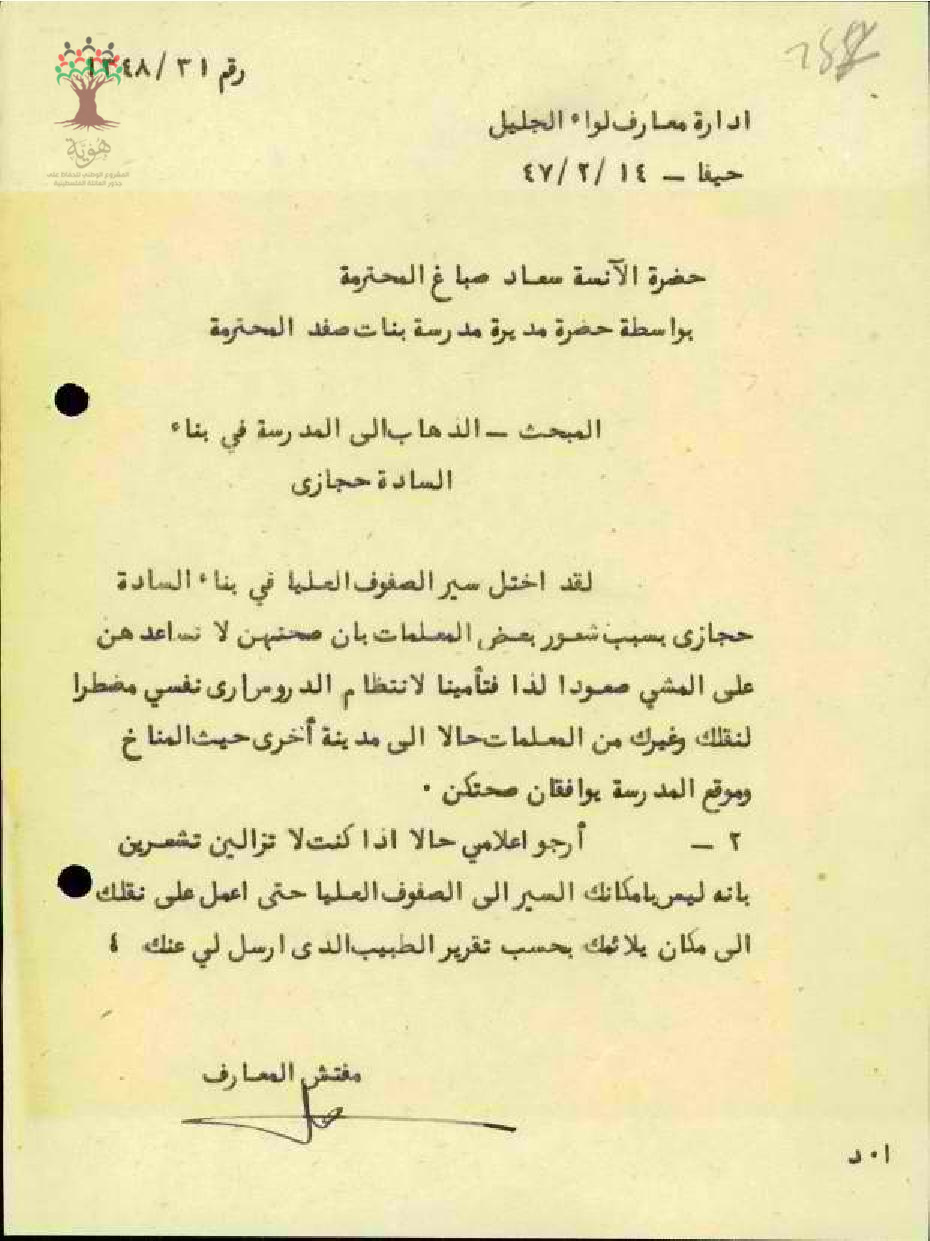 رقم ١٣٤٨/٣١
هُويّة
المشروع الوطني للحفاظ على
جذور العائلة الفلسطينية
ادارة معارف لواء الجليل
حيفا – ٤٧/٢/١٤
حضرة الآنسة سعاد صباغ المحترمة
بواسطة حضرة مديرة مدرسة بنات صفد المحترمة
المبحث – الذهاب الى المدرسة في بناء
السادة حجازى
لقد اختل سير الصفوف العليا في بناء السادة
حجازى بسبب شعور بعض المعلمات بان صحتهن لا تساعدهن
على المشي صعودا لذا فتأمينا لانتظام الدروس ارى نفسي مضطرا
لنقلك وغيرك من المعلمات حالا الى مدينة أخرى حيث المناخ
وموقع المدرسة يوافقان صحتكن ٠
٢ – أرجو اعلامي حالا اذا كنت لا تزالين تشعرين
بانه ليس بامكانك السير الى الصفوف العليا حتى اعمل على نقلك
الى مكان يلائمك بحسب تقرير الطبيب الذى ارسل لي عنك ٤
مفتش المعارف
ا٠د